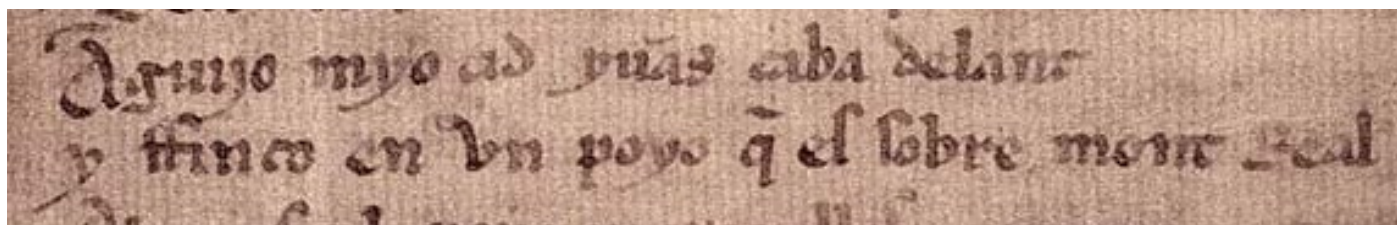 Aguijo myo cid yuas caba delant
y ffinco en vn poyo q̃ es sobre mont Real